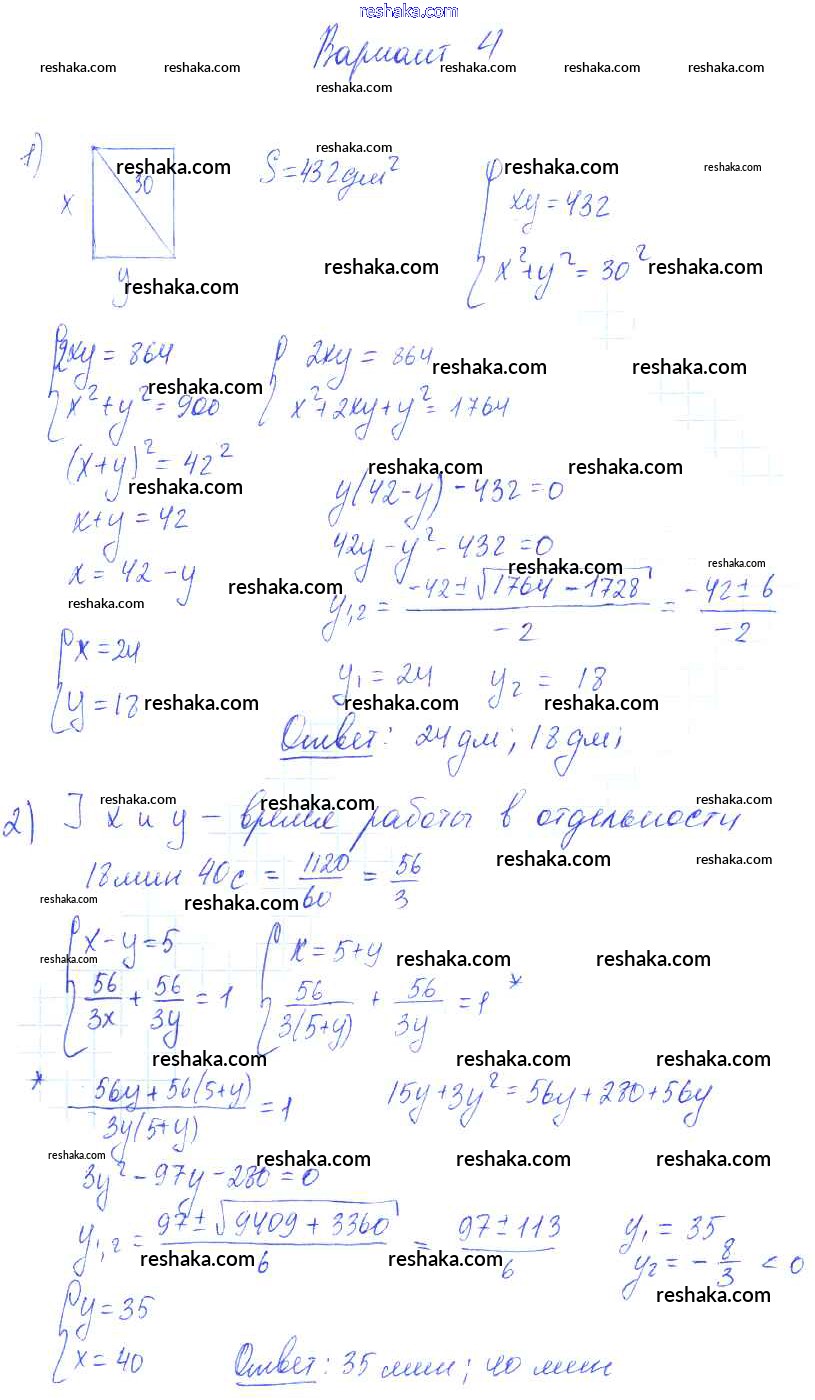 reshaka.com
Вариант 4
reshaka.com reshaka.com reshaka.com reshaka.com reshaka.com
reshaka.com
reshaka.com
1) 30 x y S = 432 дм²
reshaka.com reshaka.com reshaka.com
{ xy = 432
{ x² + y² = 30²
reshaka.com reshaka.com
reshaka.com
{ 2xy = 864
{ x² + y² = 900
{ 2xy = 864
{ x² + 2xy + y² = 1764
reshaka.com reshaka.com
reshaka.com
(x + y)² = 42²
reshaka.com reshaka.com
reshaka.com
x + y = 42
x = 42 - y
y(42 - y) - 432 = 0
42y - y² - 432 = 0
reshaka.com reshaka.com
reshaka.com
reshaka.com
y1,2 = (-42 ± √(1764 - 1728)) / -2 = (-42 ± 6) / -2
{ x = 24
{ y = 18
y1 = 24 y2 = 18
reshaka.com reshaka.com reshaka.com
Ответ: 24 дм; 18 дм;
reshaka.com reshaka.com reshaka.com
2) ] x и y – время работы в отдельности
reshaka.com reshaka.com
18 мин 40 с = 1120/60 = 56/3
reshaka.com reshaka.com
{ x - y = 5
{ 56/3x + 56/3y = 1
{ x = 5 + y
{ 56/3(5+y) + 56/3y = 1 *
reshaka.com reshaka.com reshaka.com
reshaka.com reshaka.com reshaka.com
* (56y + 56(5+y)) / 3y(5+y) = 1
15y + 3y² = 56y + 280 + 56y
reshaka.com reshaka.com reshaka.com reshaka.com
3y² - 97y - 280 = 0
y1,2 = (97 ± √(9409 + 3360)) / 6 = (97 ± 113) / 6
y1 = 35
y2 = -8/3 < 0
reshaka.com reshaka.com
reshaka.com
{ y = 35
{ x = 40
Ответ: 35 мин; 40 мин